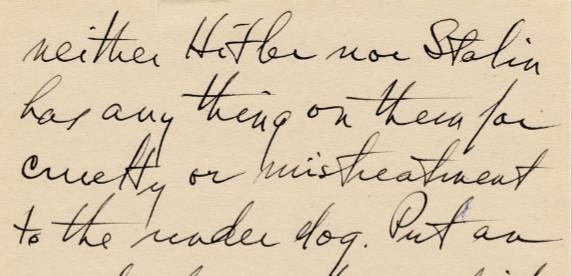 neither Hitler nor Stalin
has any thing on them for
cruelty or mistreatment
to the under dog. Put an